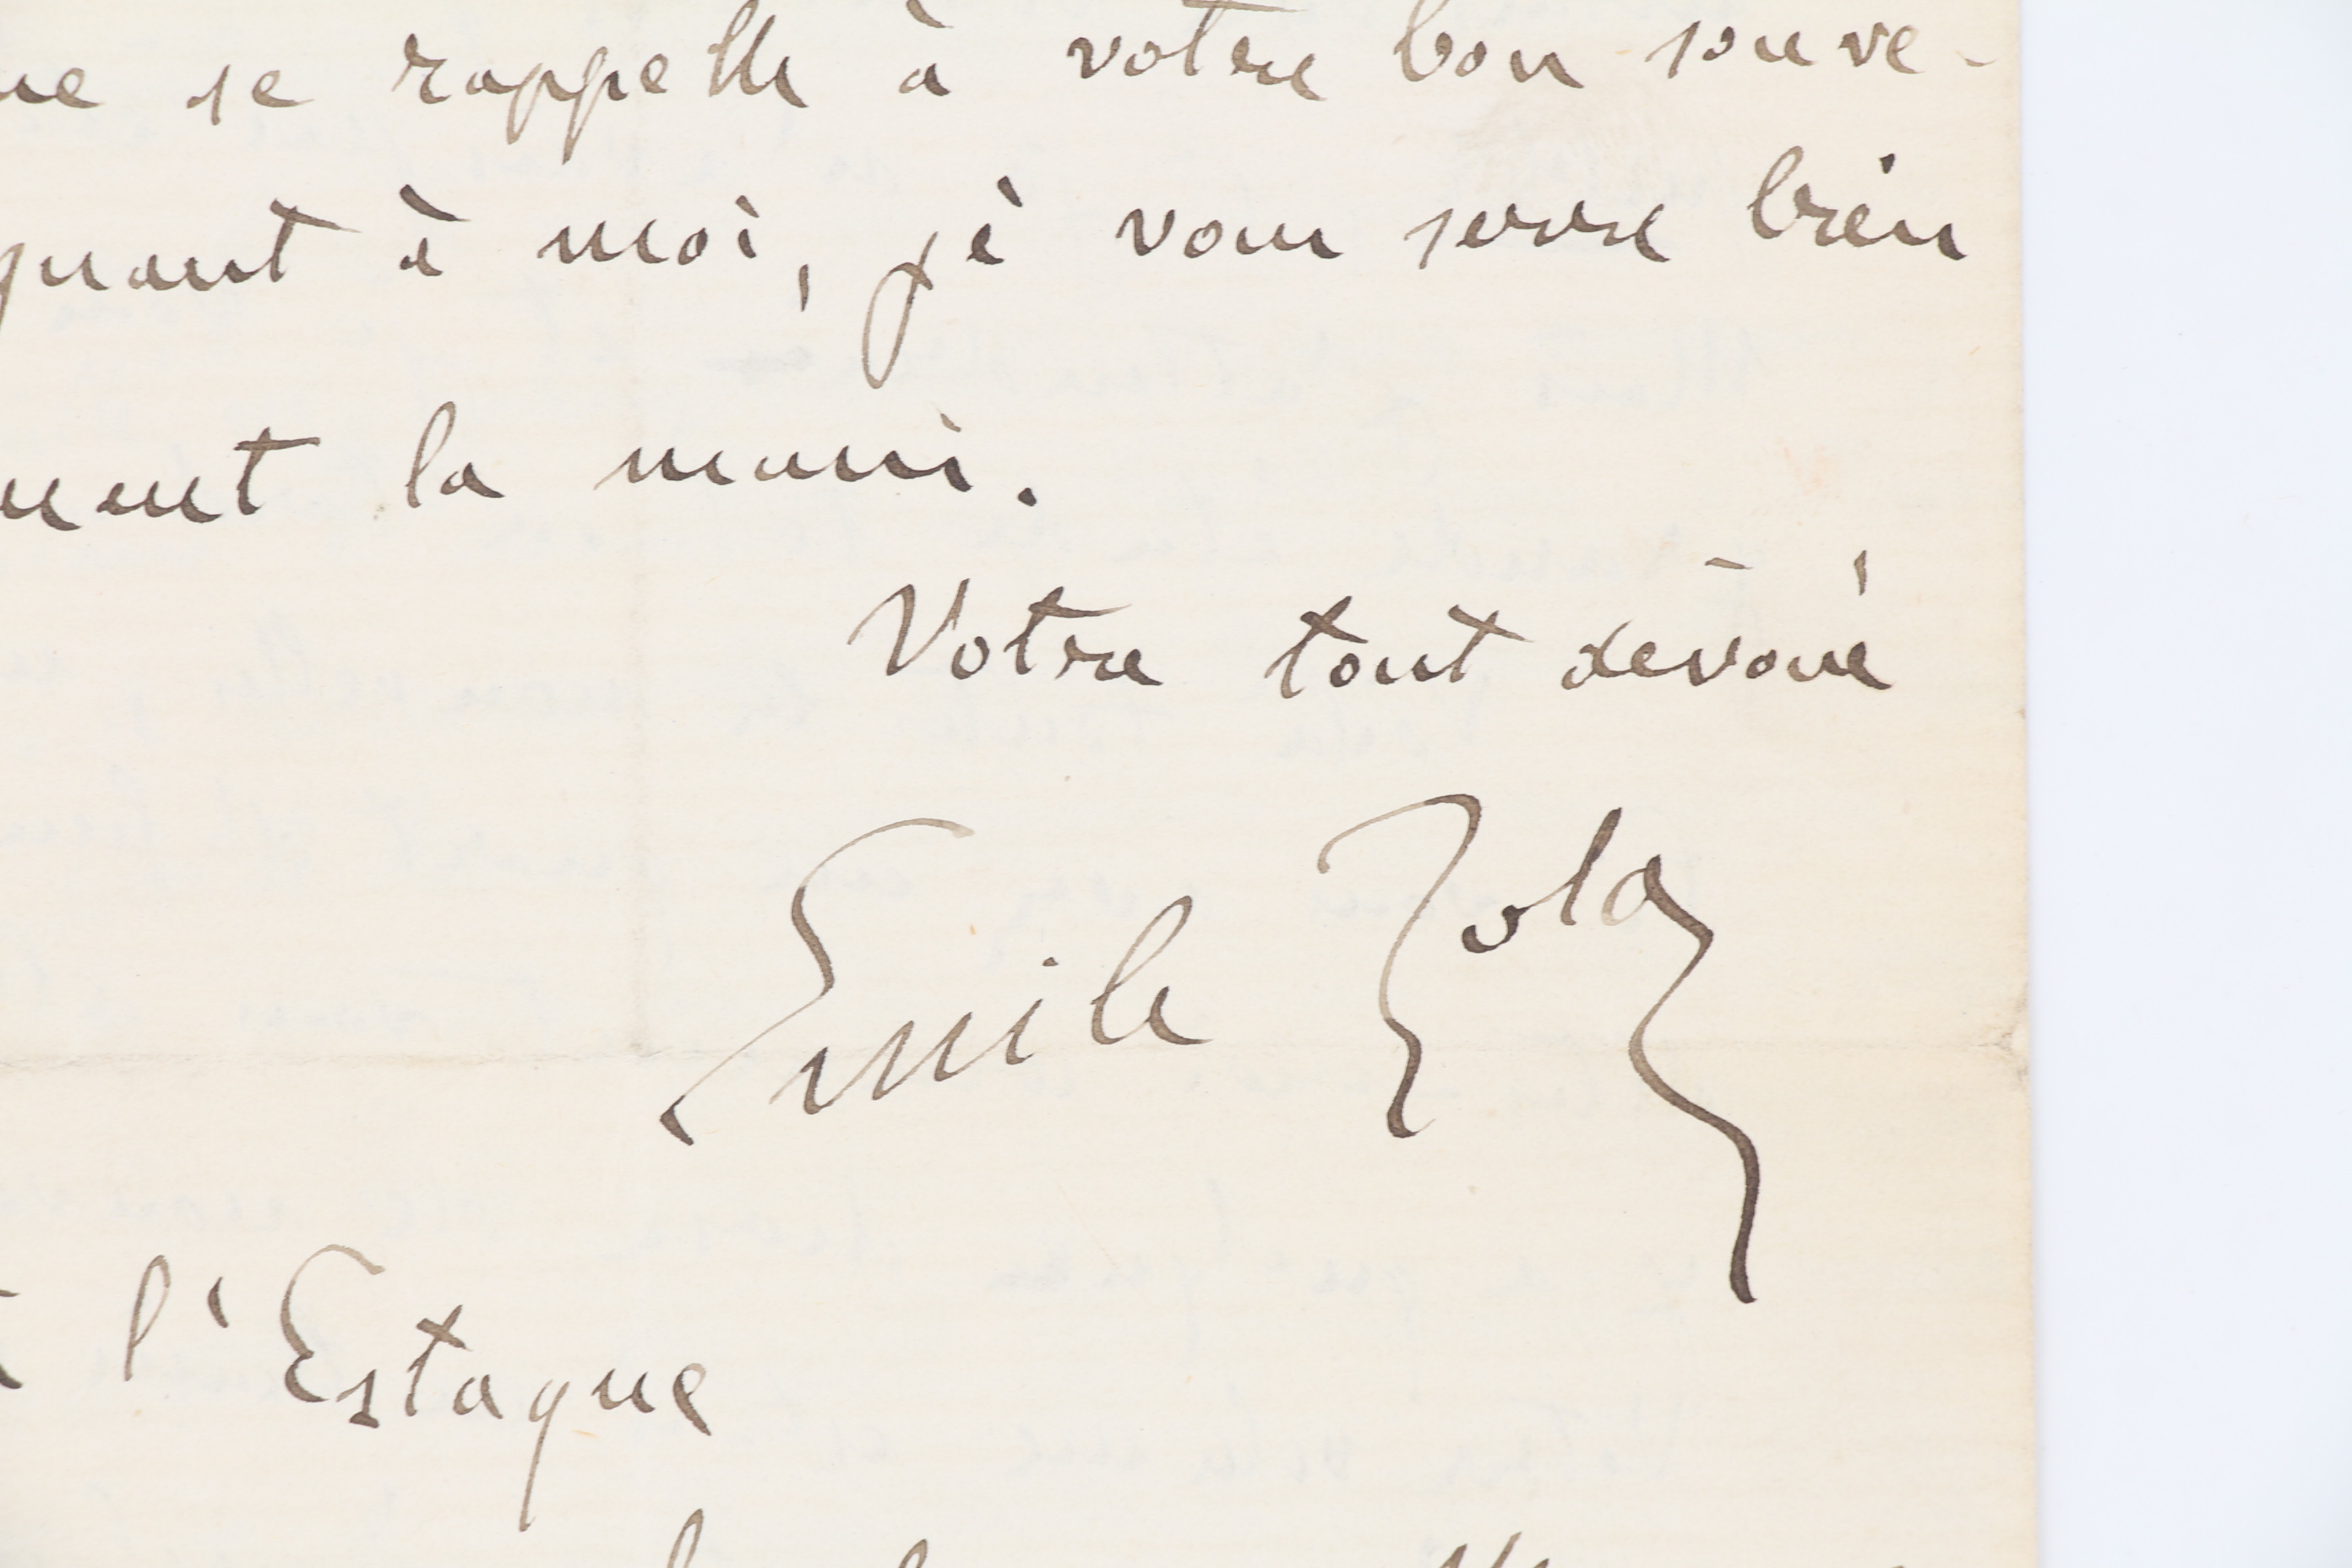 se rappelle à votre bon souve-
quant à moi, je vous serre bien
la main.
Votre tout dévoué
Emile Zola
l'Estaque